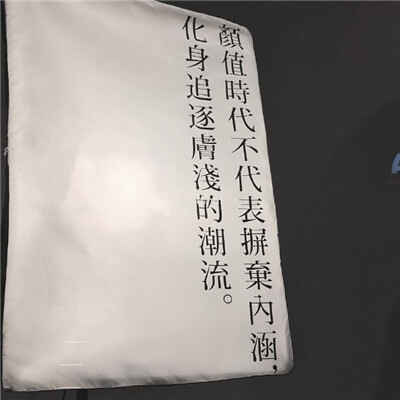 顏值時代不代表摒棄內涵,
化身追逐膚淺的潮流。